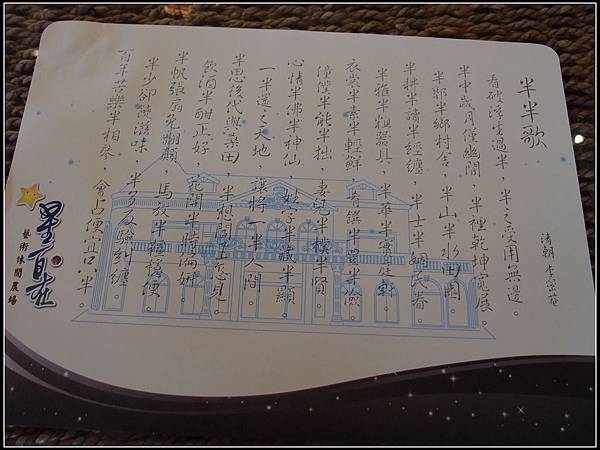 半半歌
清朝 李密菴
看破浮生過半，半之受用無邊。
半中歲月儘幽閒，半裡乾坤寬展。
半郭半鄉村舍，半山半水田園，
半耕半讀半經纏，半士半姻民眷
半雅半粗器具，半華半實庭軒
衣裳半素半輕鮮，肴饌半豐半儉。
僮僕半能半拙，妻兒半樸半賢。
心情半佛半神仙，姓字半藏半顯
一半還之天地 讓將一半人間
半思後代與桑田，半想閻王怎見。
飲酒半酣正好 花開半時偏妍
半帆張扇免翻顛，馬放半韁穩便。
半少卻饒滋味，半多反驗糾纏。
百年苦樂半相參，會占便宜只半。
星自在
藝術休閒農場